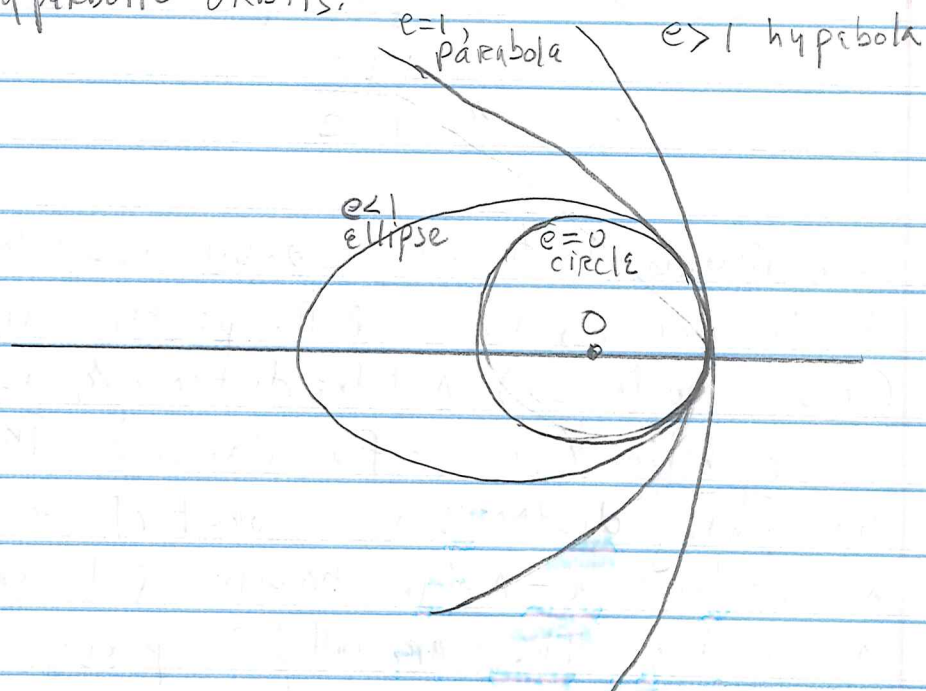 e=1,
parabola
e>1 hypebola
e<1
ellipse
e=0
circle
O